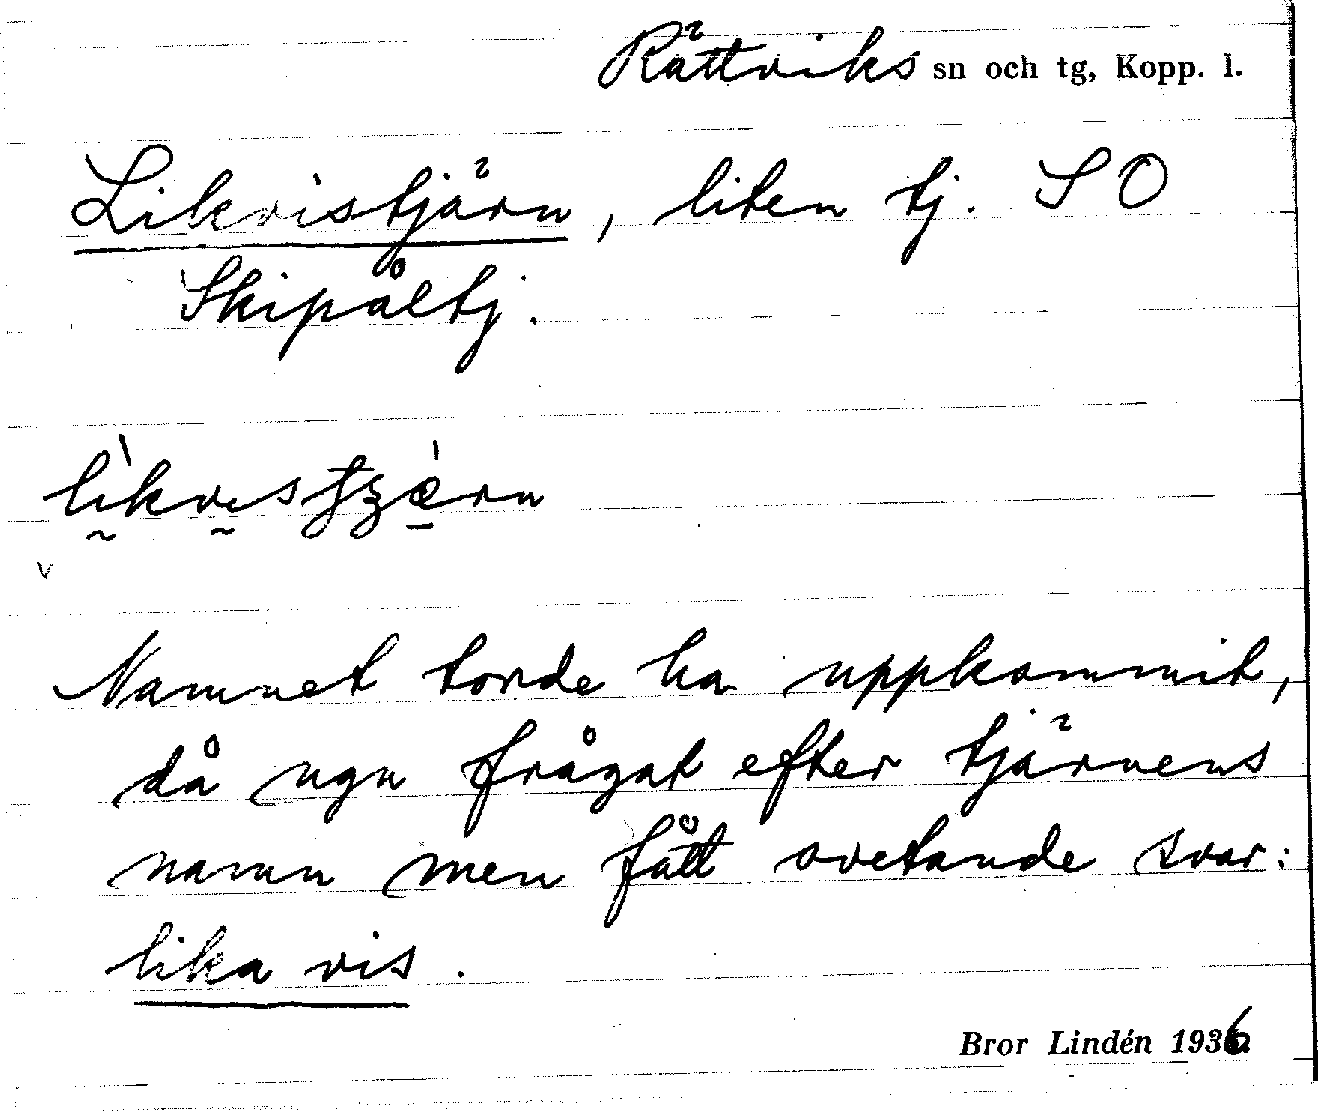 Rättviks sn och tg, Kopp. l.
Likvistjärn, liten tj. SO
Skipåltj.
Namnet torde ha uppkommit,
då ngn frågat efter tjärnens
namn men fått ovetande svar:
lika vis.
Bror Lindén 1936